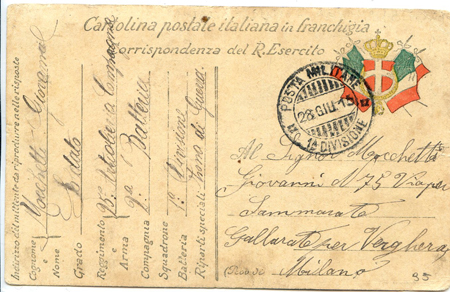 Cartolina postale italiana in franchigia
Corrispondenza del R. Esercito
POSTA MILITARE
28.GIU.15
1ª DIVISIONE
Indirizzo del mittente da riprodurre nelle risposte
Cognome Mocchetti
e
Nome Giovanni
Grado Soldato
Reggimento Artiglieria Campagna
e
Arma
Compagnia Batteria
Squadrone
Batteria Divisione
Riparti speciali Zona di Guerra
Al Signor Mocchetti
Giovanni N 75 Via per
Sammarate
Gallarate per Verghera
Milano
35